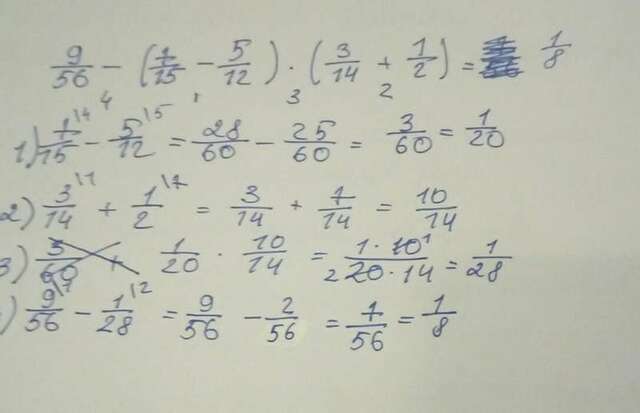 9/56 - (7/15 - 5/12) · (3/14 + 1/2) = 1/8
4 1 3 2
1) 7/15 \4 - 5/12 \5 = 28/60 - 25/60 = 3/60 = 1/20
2) 3/14 \1 + 1/2 \7 = 3/14 + 7/14 = 10/14
3) 1/20 · 10/14 = 1·10 1/2 20·14 = 1/28
) 9/56 \1 - 1/28 \2 = 9/56 - 2/56 = 7/56 = 1/8